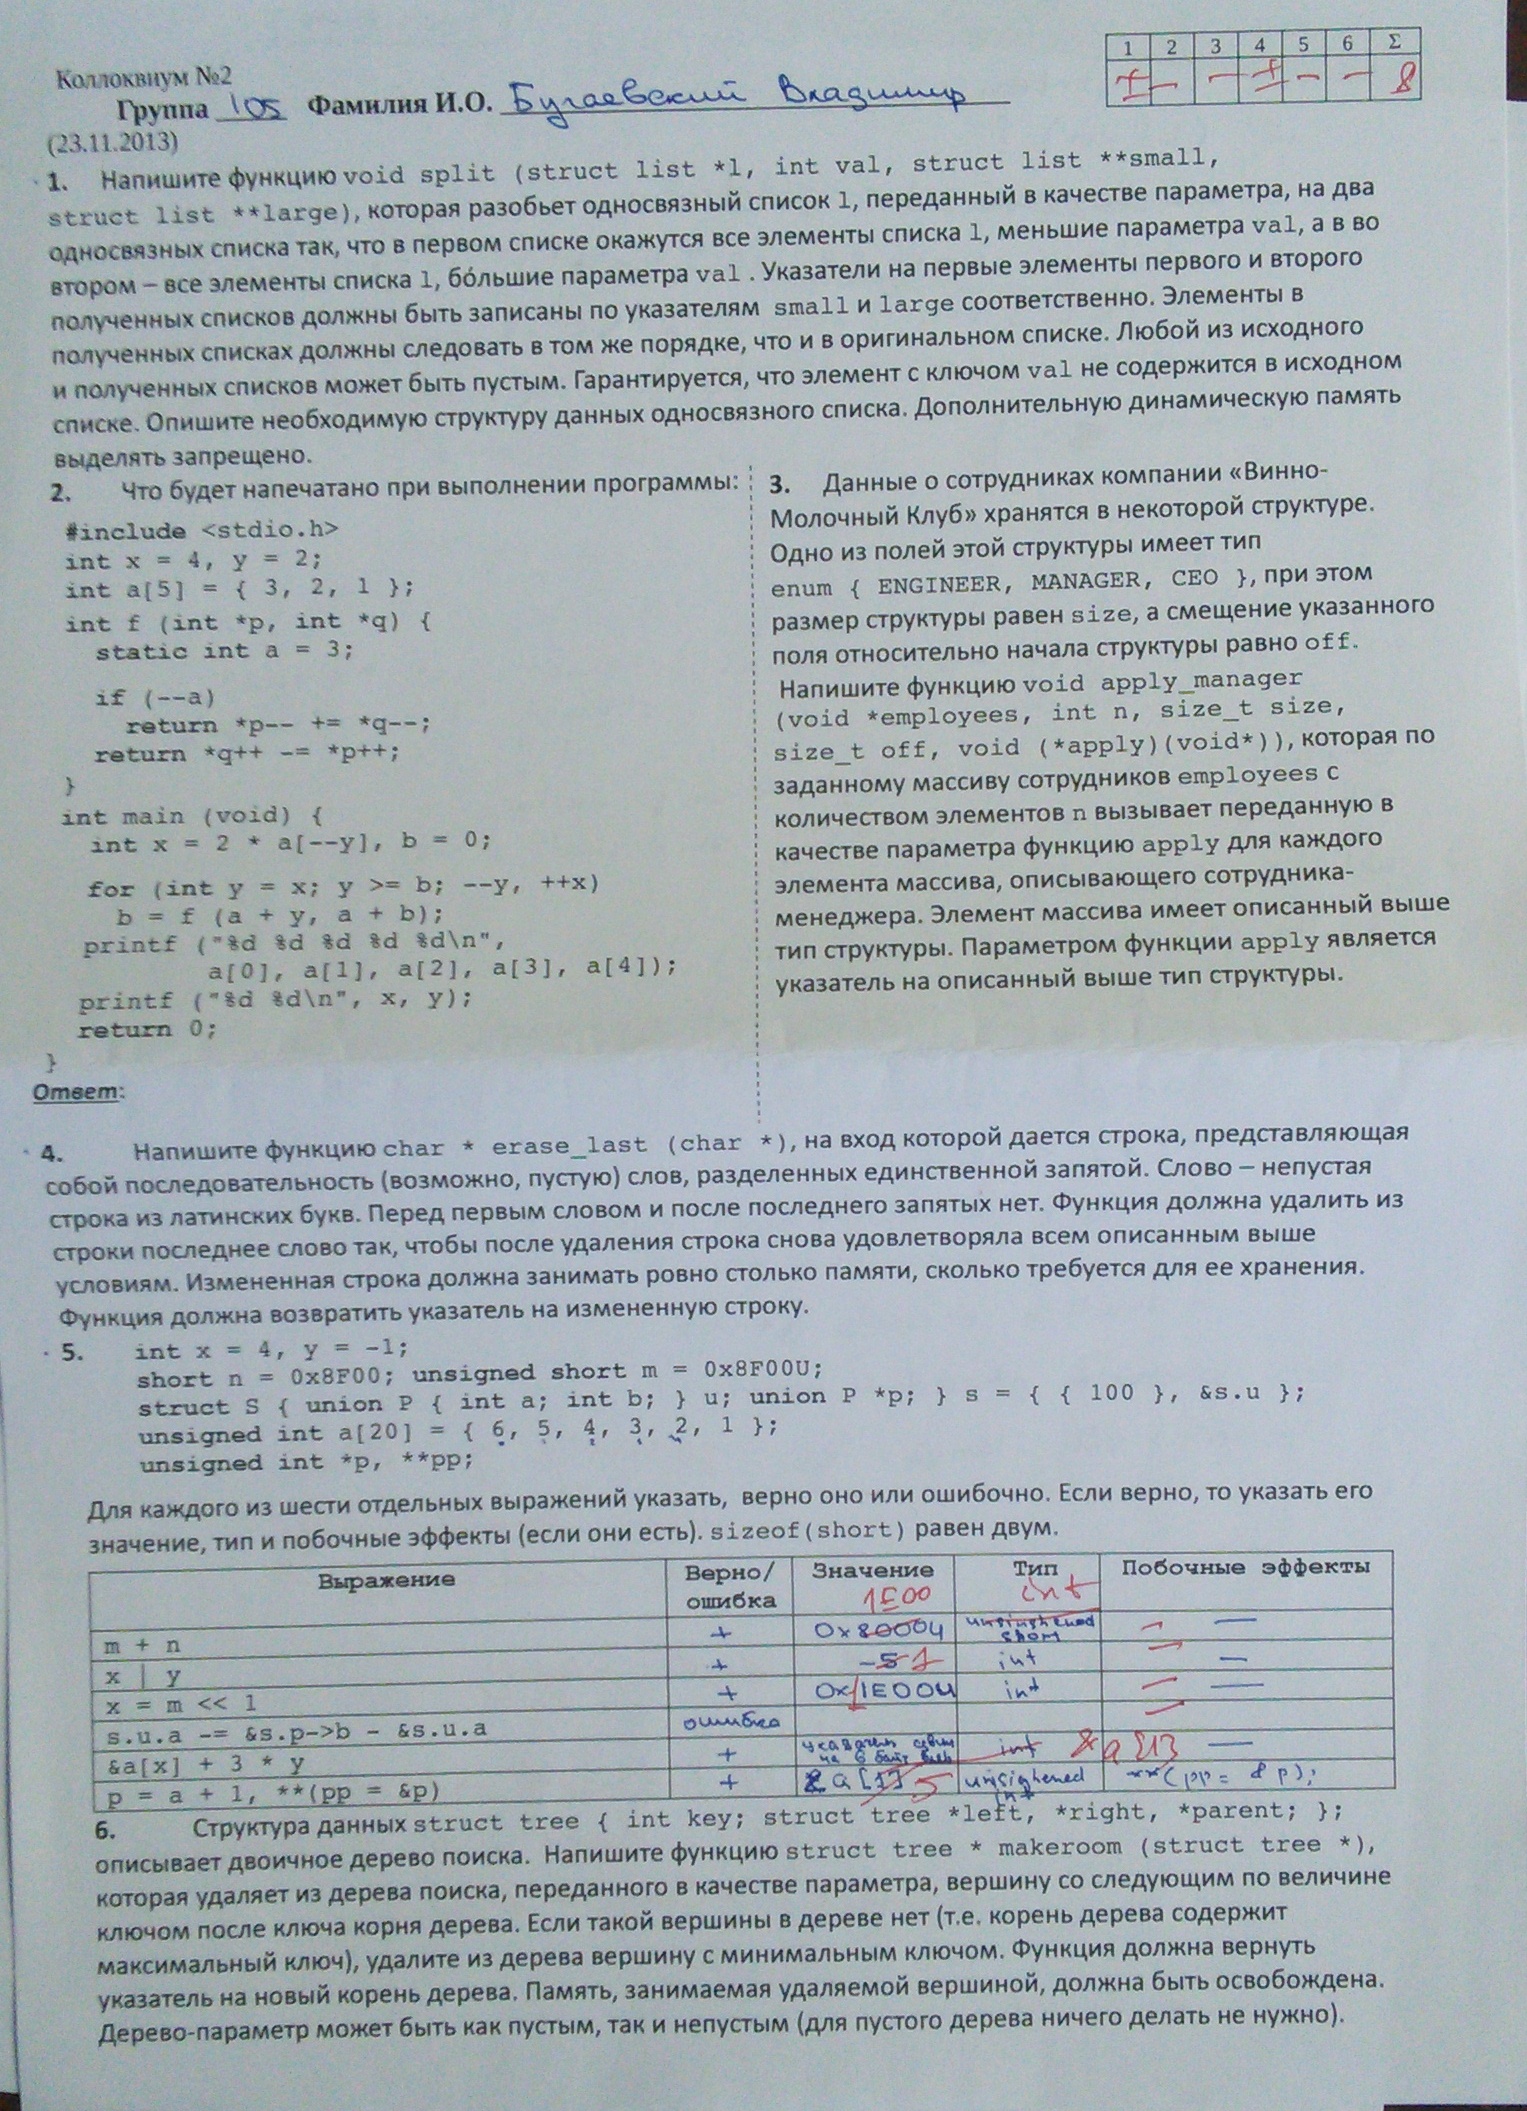 1 2 3 4 5 6 Σ
Коллоквиум №2
Группа 105 Фамилия И.О. Бугаевский Владимир
+ - - + - - 8
(23.11.2013)
1. Напишите функцию void split (struct list *l, int val, struct list **small,
struct list **large), которая разобьет односвязный список l, переданный в качестве параметра, на два
односвязных списка так, что в первом списке окажутся все элементы списка l, меньшие параметра val, а в во
втором – все элементы списка l, бóльшие параметра val . Указатели на первые элементы первого и второго
полученных списков должны быть записаны по указателям small и large соответственно. Элементы в
полученных списках должны следовать в том же порядке, что и в оригинальном списке. Любой из исходного
и полученных списков может быть пустым. Гарантируется, что элемент с ключом val не содержится в исходном
списке. Опишите необходимую структуру данных односвязного списка. Дополнительную динамическую память
выделять запрещено.
2. Что будет напечатано при выполнении программы:
#include <stdio.h>
int x = 4, y = 2;
int a[5] = { 3, 2, 1 };
int f (int *p, int *q) {
static int a = 3;
if (--a)
return *p-- += *q--;
return *q++ -= *p++;
}
int main (void) {
int x = 2 * a[--y], b = 0;
for (int y = x; y >= b; --y, ++x)
b = f (a + y, a + b);
printf ("%d %d %d %d %d\n",
a[0], a[1], a[2], a[3], a[4]);
printf ("%d %d\n", x, y);
return 0;
}
Ответ:
3. Данные о сотрудниках компании «Винно-
Молочный Клуб» хранятся в некоторой структуре.
Одно из полей этой структуры имеет тип
enum { ENGINEER, MANAGER, CEO }, при этом
размер структуры равен size, а смещение указанного
поля относительно начала структуры равно off.
Напишите функцию void apply_manager
(void *employees, int n, size_t size,
size_t off, void (*apply)(void*)), которая по
заданному массиву сотрудников employees с
количеством элементов n вызывает переданную в
качестве параметра функцию apply для каждого
элемента массива, описывающего сотрудника-
менеджера. Элемент массива имеет описанный выше
тип структуры. Параметром функции apply является
указатель на описанный выше тип структуры.
4. Напишите функцию char * erase_last (char *), на вход которой дается строка, представляющая
собой последовательность (возможно, пустую) слов, разделенных единственной запятой. Слово – непустая
строка из латинских букв. Перед первым словом и после последнего запятых нет. Функция должна удалить из
строки последнее слово так, чтобы после удаления строка снова удовлетворяла всем описанным выше
условиям. Измененная строка должна занимать ровно столько памяти, сколько требуется для ее хранения.
Функция должна возвратить указатель на измененную строку.
5. int x = 4, y = -1;
short n = 0x8F00; unsigned short m = 0x8F00U;
struct S { union P { int a; int b; } u; union P *p; } s = { { 100 }, &s.u };
unsigned int a[20] = { 6, 5, 4, 3, 2, 1 };
unsigned int *p, **pp;
Для каждого из шести отдельных выражений указать, верно оно или ошибочно. Если верно, то указать его
значение, тип и побочные эффекты (если они есть). sizeof(short) равен двум.
Выражение Верно/ Значение Тип Побочные эффекты
ошибка 1E00 int
m + n + 0x80004 unsinghened short - —
x | y + -5 1 int - —
x = m << 1 + 0x11E004 int - —
s.u.a -= &s.p->b - &s.u.a ошибка -
&a[x] + 3 * y + int &a[1] —
p = a + 1, **(pp = &p) + &a[1] 5 unsighened int **(pp = &p);
6. Структура данных struct tree { int key; struct tree *left, *right, *parent; };
описывает двоичное дерево поиска. Напишите функцию struct tree * makeroom (struct tree *),
которая удаляет из дерева поиска, переданного в качестве параметра, вершину со следующим по величине
ключом после ключа корня дерева. Если такой вершины в дереве нет (т.е. корень дерева содержит
максимальный ключ), удалите из дерева вершину с минимальным ключом. Функция должна вернуть
указатель на новый корень дерева. Память, занимаемая удаляемой вершиной, должна быть освобождена.
Дерево-параметр может быть как пустым, так и непустым (для пустого дерева ничего делать не нужно).